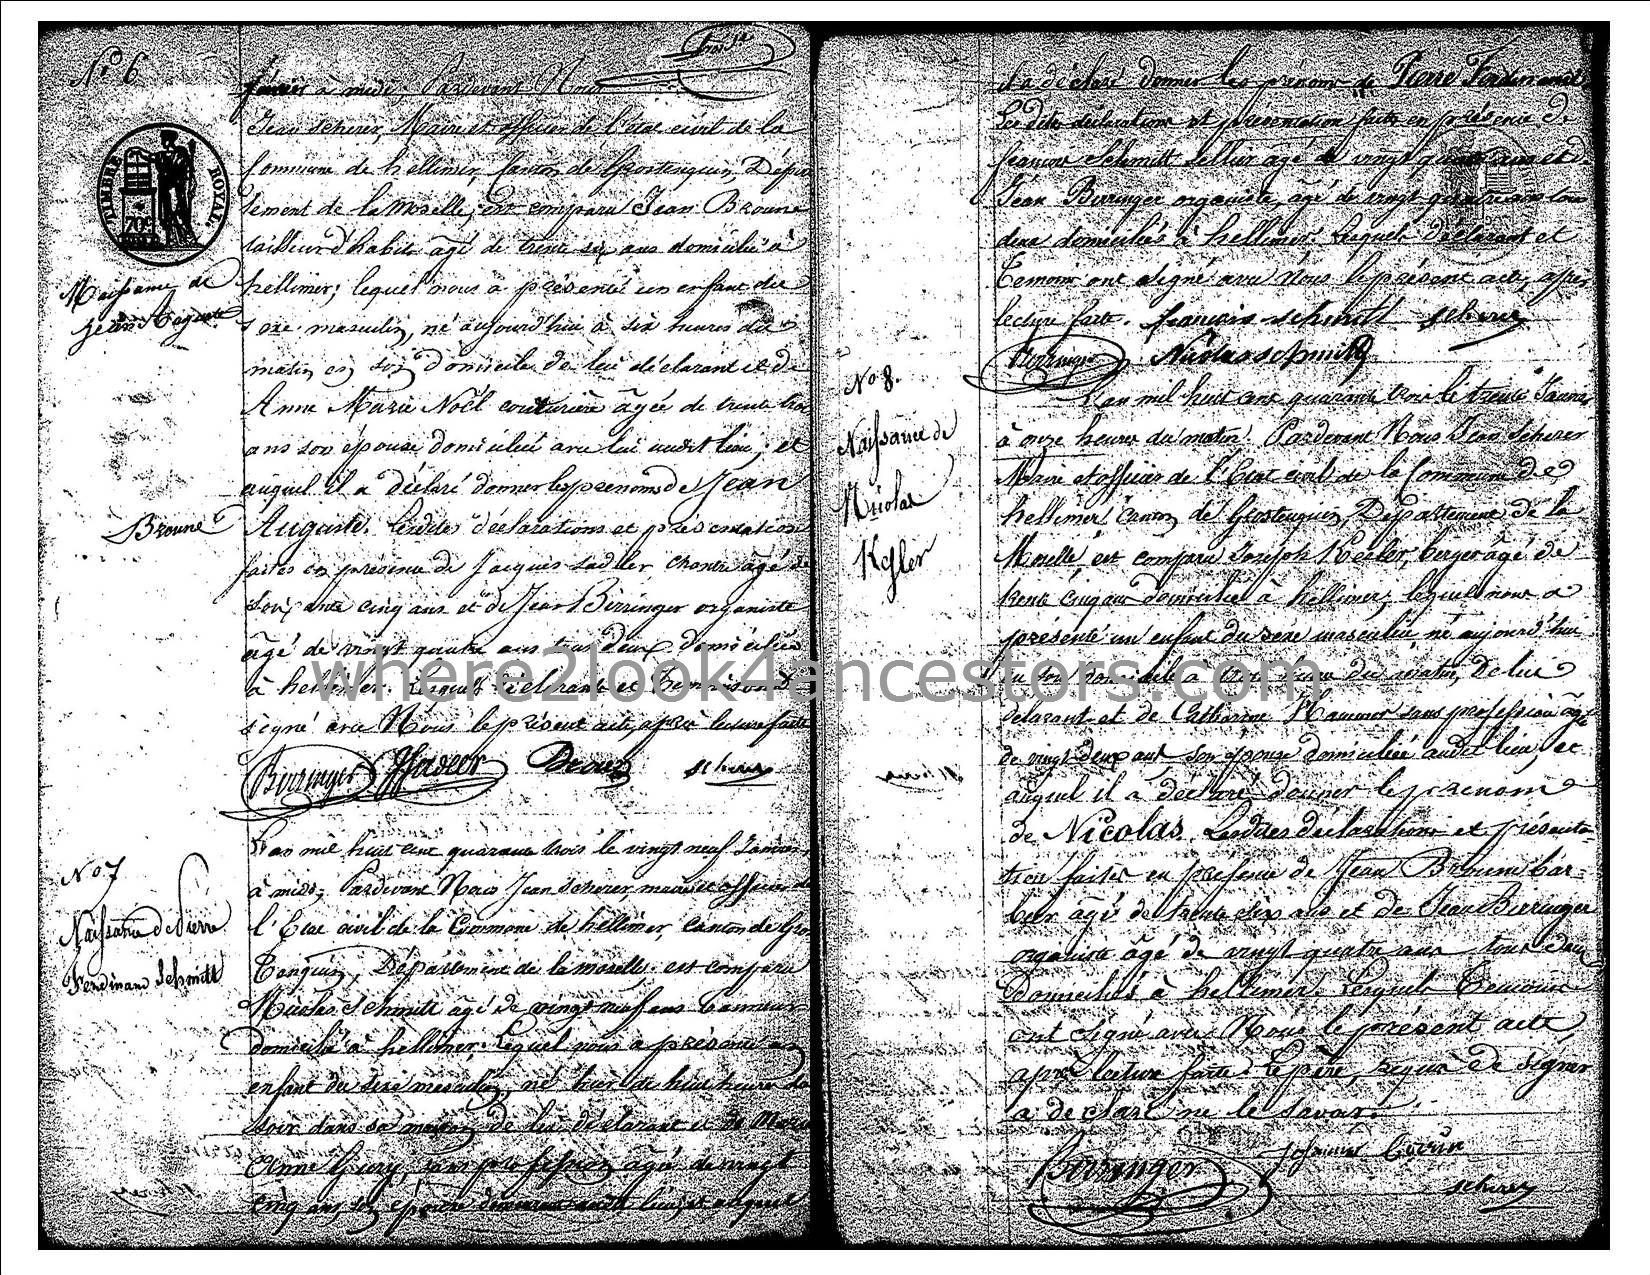 N° 6
TIMBRE ROYAL
70c
Naissance de
Jean Auguste
Broune
janvier à midi, Pardevant Nous
Jean Scherer, Maire et officier de l'état civil de la
Commune de hellimer, Canton de Grostenquin, Dépar
tement de la Moselle, est comparu Jean Broune
tailleur d'habits âgé de trente six ans domicilié à
hellimer; lequel nous a présenté un enfant du
sexe masculin, né aujourd'hui à six heures du
matin en son domicile de lui déclarant et de
Anne Marie Noël couturière âgée de trente trois
ans son épouse domiciliée avec lui audit lieu, et
auquel il a déclaré donner les prenoms de Jean
Auguste. Lesdites déclarations et présentation
faites en présence de Jacques Sadler, chantre âgé de
soixante cinq ans et de Jean Birringer organiste
âgé de vingt quatre ans tous deux domiciliés
à hellimer. Lesquels déclarant et témoins ont
signé avec Nous le présent acte après lecture faite
Birringer Broun scherer
N° 7
Naissance de Pierre
Ferdinand Schmitt
L'an mil huit cent quarante trois le vingt neuf Janvier
à midi, Pardevant Nous Jean Scherer, maire et officier de
l'Etat civil de la Commune de hellimer, Canton de Gros
tenquin, Département de la moselle, est comparu
Nicolas Schmitt âgé de vingt neuf ans tanneur
domicilié à hellimer. Lequel nous a présenté un
enfant du sexe masculin, né hier de huit heures du
soir dans sa maison de lui déclarant et de Marie
Anne Guzy, sans profession âgée de vingt
cinq ans, son épouse demeurant audit lieu, et auquel
il a déclaré donner les prénoms de Pierre Ferdinand
Lesdites déclarations et présentation faites en présence de
françois Schmitt sellier âgé de vingt quatre ans et de
Jean Birringer organiste, âgé de vingt quatre ans tous
deux domiciliés à hellimer. Lesquels déclarant et
Temoins ont signé avec Nous le présent acte, après
lecture faite. françois schmitt scherer
Birringer Nicolas schmitt
N° 8.
Naissance de
Nicolas
Kesler
L'an mil huit cent quarante trois le trente Janvier
à onze heures du matin. Pardevant Nous Jean Scherer
Maire et officier de l'Etat civil de la Commune de
hellimer, Canton de Grostenquin, Département de la
Moselle, est comparu Joseph Kesler, berger âgé de
trente cinq ans domicilié à hellimer, lequel nous a
présenté un enfant du sexe masculin, né aujourd'hui
en son domicile à heures du matin, de lui
déclarant et de Catharine Hammer sans profession âgée
de vingt deux ans son épouse domiciliée audit lieu, et
auquel il a déclaré donner le prenom
de Nicolas. Lesdites déclarations et présenta-
tion faites en présence de Jean Broun
âgé de trente six ans et de Jean Birringer
organiste âgé de vingt quatre ans tous deux
Domiciliés à hellimer. Lesquels Temoins
ont signé avec Nous le présent acte,
après lecture faite. Le père, requis de signer
a déclaré ne le savoir.
Birringer scherer
where2look4ancestors.com